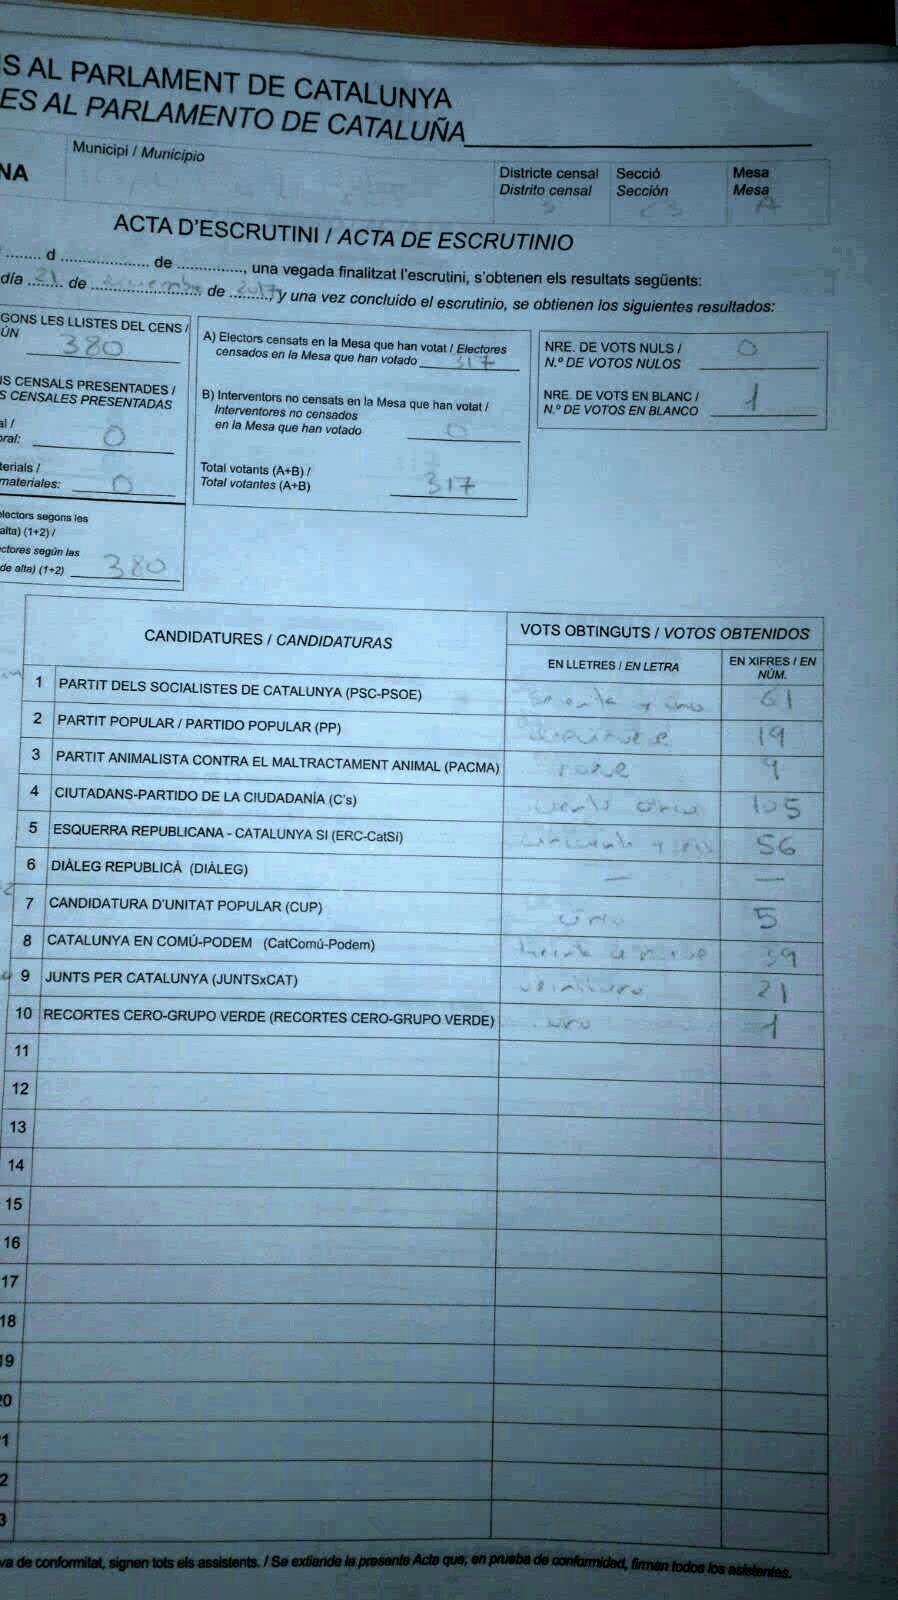 S AL PARLAMENT DE CATALUNYA
ES AL PARLAMENTO DE CATALUÑA
NA
Municipi / Municipio
Districte censal Secció Mesa
Distrito censal Sección Mesa
3 A
ACTA D'ESCRUTINI / ACTA DE ESCRUTINIO
........ d ...................... de ................, una vegada finalitzat l'escrutini, s'obtenen els resultats següents:
día 21 de de 2017, y una vez concluido el escrutinio, se obtienen los siguientes resultados:
GONS LES LLISTES DEL CENS /
ÚN
380
IS CENSALS PRESENTADES /
S CENSALES PRESENTADAS
al /
oral: 0
terials /
materiales: 0
electors segons les
alta) (1+2) /
ctores según las
de alta) (1+2) 380
A) Electors censats en la Mesa que han votat / Electores
censados en la Mesa que han votado 317
B) Interventors no censats en la Mesa que han votat /
Interventores no censados
en la Mesa que han votado 0
Total votants (A+B) /
Total votantes (A+B) 317
NRE. DE VOTS NULS / 0
N.º DE VOTOS NULOS
NRE. DE VOTS EN BLANC / 1
N.º DE VOTOS EN BLANCO
CANDIDATURES / CANDIDATURAS
VOTS OBTINGUTS / VOTOS OBTENIDOS
EN LLETRES / EN LETRA
EN XIFRES / EN
NÚM.
1 PARTIT DELS SOCIALISTES DE CATALUNYA (PSC-PSOE) sesenta y uno 61
2 PARTIT POPULAR / PARTIDO POPULAR (PP) 19
3 PARTIT ANIMALISTA CONTRA EL MALTRACTAMENT ANIMAL (PACMA) nueve 9
4 CIUTADANS-PARTIDO DE LA CIUDADANÍA (C's) ciento cinco 105
5 ESQUERRA REPUBLICANA - CATALUNYA SI (ERC-CatSí) cincuenta y seis 56
6 DIÀLEG REPUBLICÀ (DIÀLEG) — —
7 CANDIDATURA D'UNITAT POPULAR (CUP) 5
8 CATALUNYA EN COMÚ-PODEM (CatComú-Podem) 39
9 JUNTS PER CATALUNYA (JUNTSxCAT) veintiuno 21
10 RECORTES CERO-GRUPO VERDE (RECORTES CERO-GRUPO VERDE) uno 1
11
12
13
14
15
16
17
18
19
20
1
2
3
va de conformitat, signen tots els assistents. / Se extiende la presente Acta que, en prueba de conformidad, firman todos los asistentes.